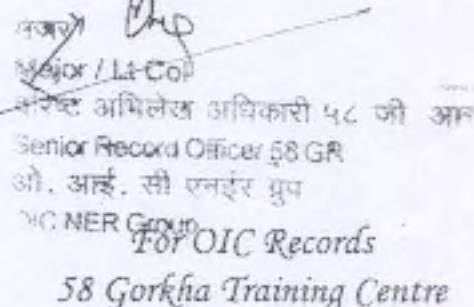 मेजर
Major / Lt Col
वरिष्ट अभिलेख अधिकारी ५८ जी आर
Senior Record Officer 58 GR
ओ. आई. सी एनईर ग्रुप
OIC NER Group
For OIC Records
58 Gorkha Training Centre